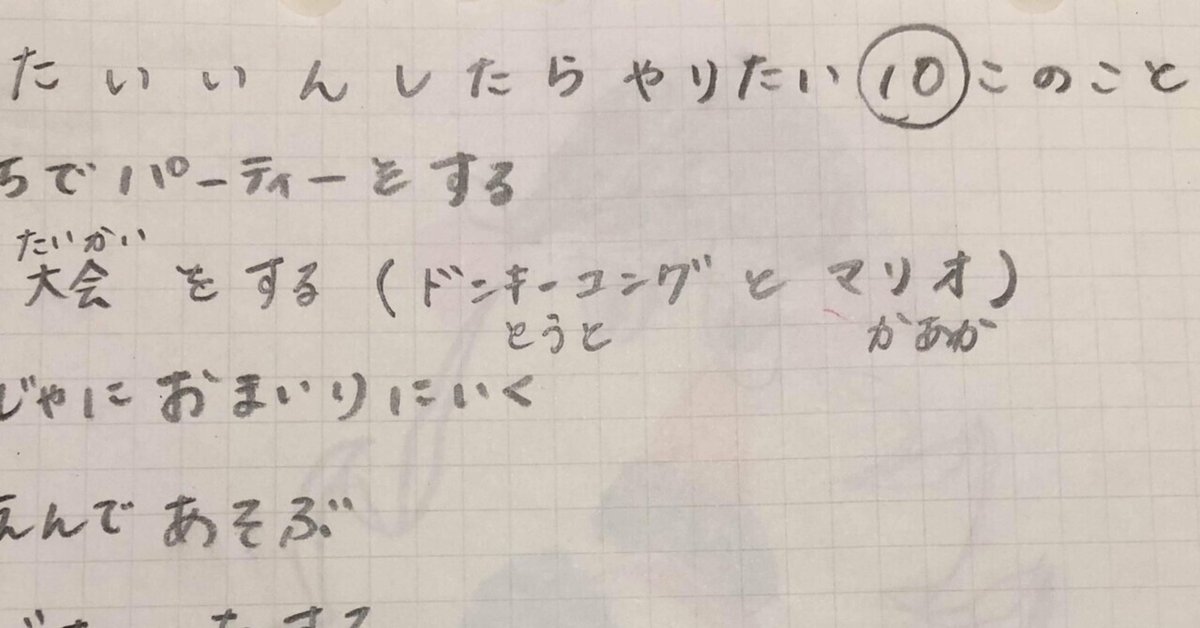 たいいんしたらやりたい⑩このこと
ちでパーティーをする
たいかい
大会をする(ドンキーコングとマリオ)
とうと かあか
じゃにおまいりにいく
えんであそぶ